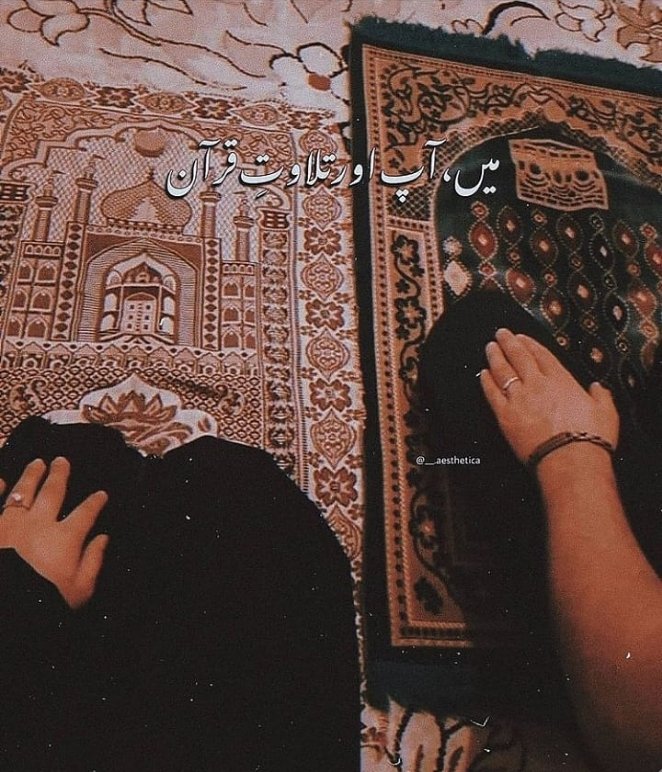 میں، آپ اور تلاوتِ قرآن
@__aesthetica